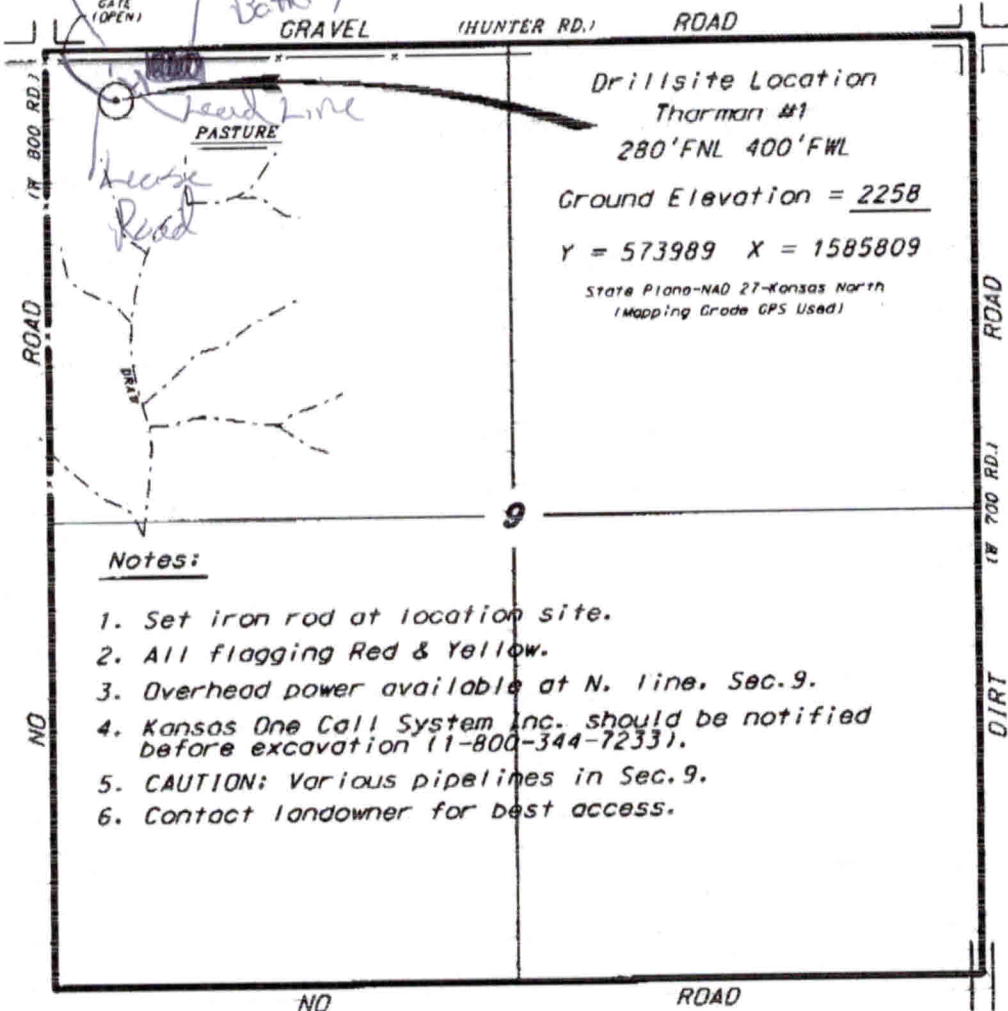 GATE
(OPEN)
Batt
GRAVEL (HUNTER RD.) ROAD
(W 800 RD.)
ROAD
NO
Lead Line
PASTURE
Lease
Road
DRAW
Drillsite Location
Tharman #1
280'FNL 400'FWL
Ground Elevation = 2258
Y = 573989 X = 1585809
State Plane-NAD 27-Kansas North
(Mapping Grade GPS Used)
ROAD
(W 700 RD.)
DIRT
9
Notes:
1. Set iron rod at location site.
2. All flagging Red & Yellow.
3. Overhead power available at N. line. Sec.9.
4. Kansas One Call System Inc. should be notified
before excavation (1-800-344-7233).
5. CAUTION: Various pipelines in Sec.9.
6. Contact landowner for best access.
NO ROAD